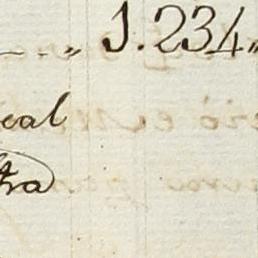 1.234,,
eal
tra